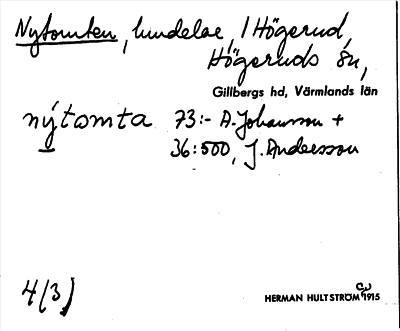 Nytomten, lundelar, / Högerud,
Högeruds sn,
Gillbergs hd, Värmlands län
nýtomta 73:- A. Johansson +
36:500, J. Andersson
4/3)
HERMAN HULTSTRÖM 1915